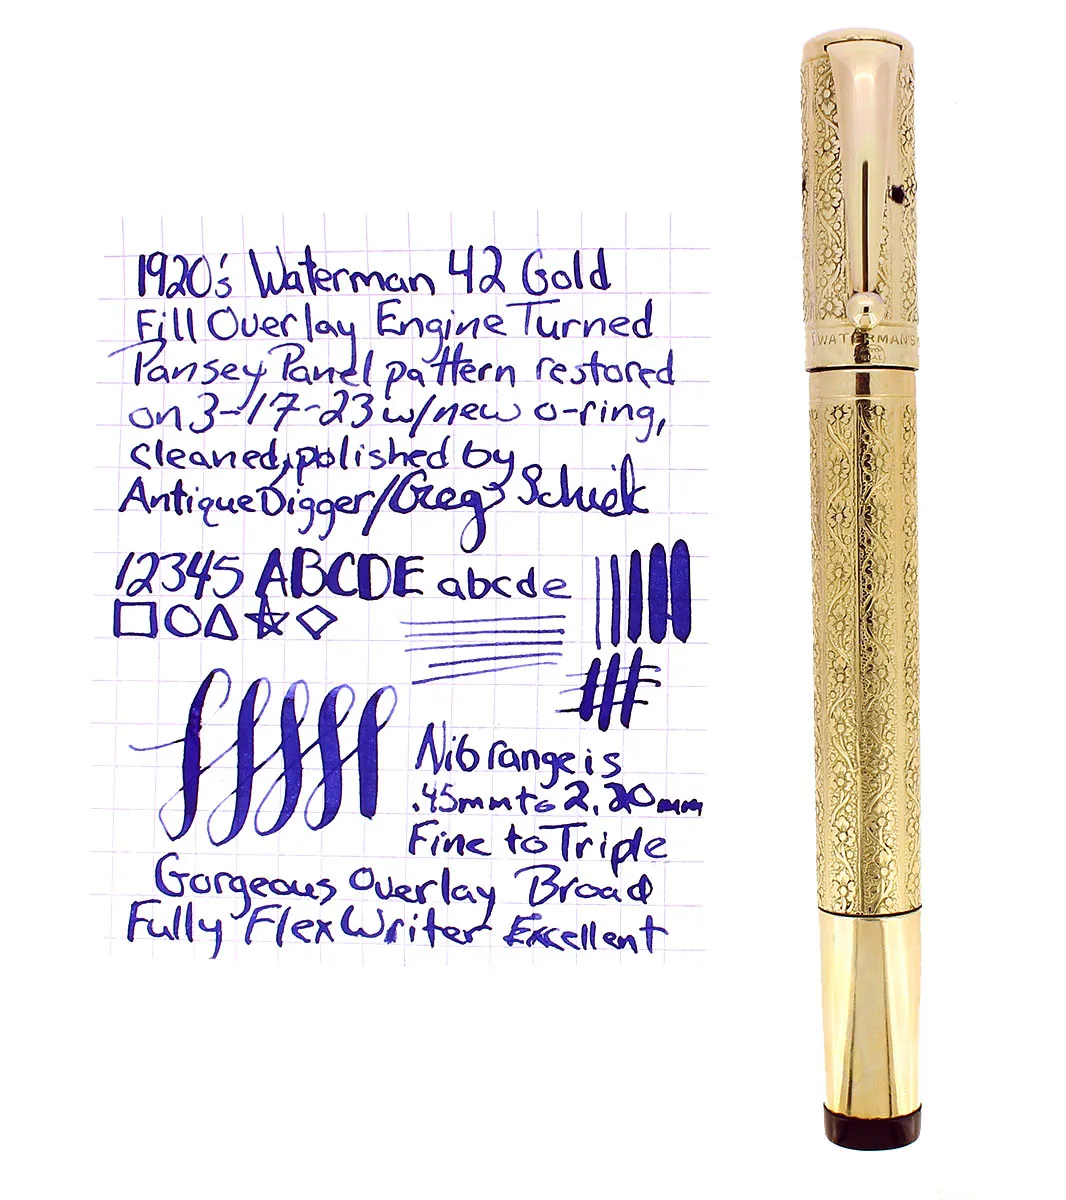 1920's Waterman 42 Gold
Fill Overlay Engine Turned
Pansey Panel pattern restored
on 3-17-23 w/new o-ring,
cleaned, polished by
AntiqueDigger/Greg Schiek
12345 ABCDE abcde
Nib range is
.45mm to 2.20mm
Fine to Triple
Gorgeous Overlay Broad
Fully Flex Writer Excellent
WATERMAN'S